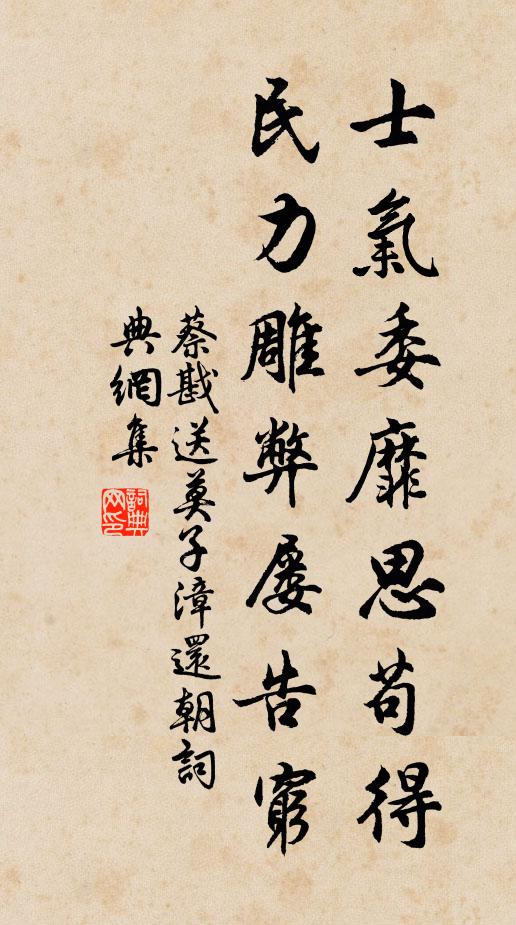 士氣委靡思苟得
民力雕弊屡告窮
蔡戡送莫子漳還朝詞
典網集
詞典
网印